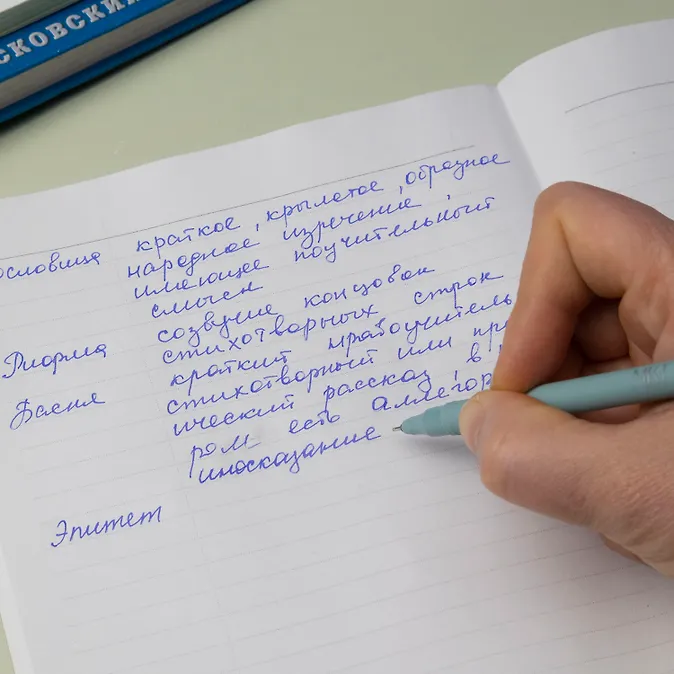 СКОВСКИЙ
ословица краткое, крылатое, образное
народное изречение,
имеющее поучительный
смысл
Рифма созвучие концовок
стихотворных строк
Басня краткий нравоучитель
стихотворный или пр
ический рассказ, в
ром есть аллегор
иносказание
Эпитет